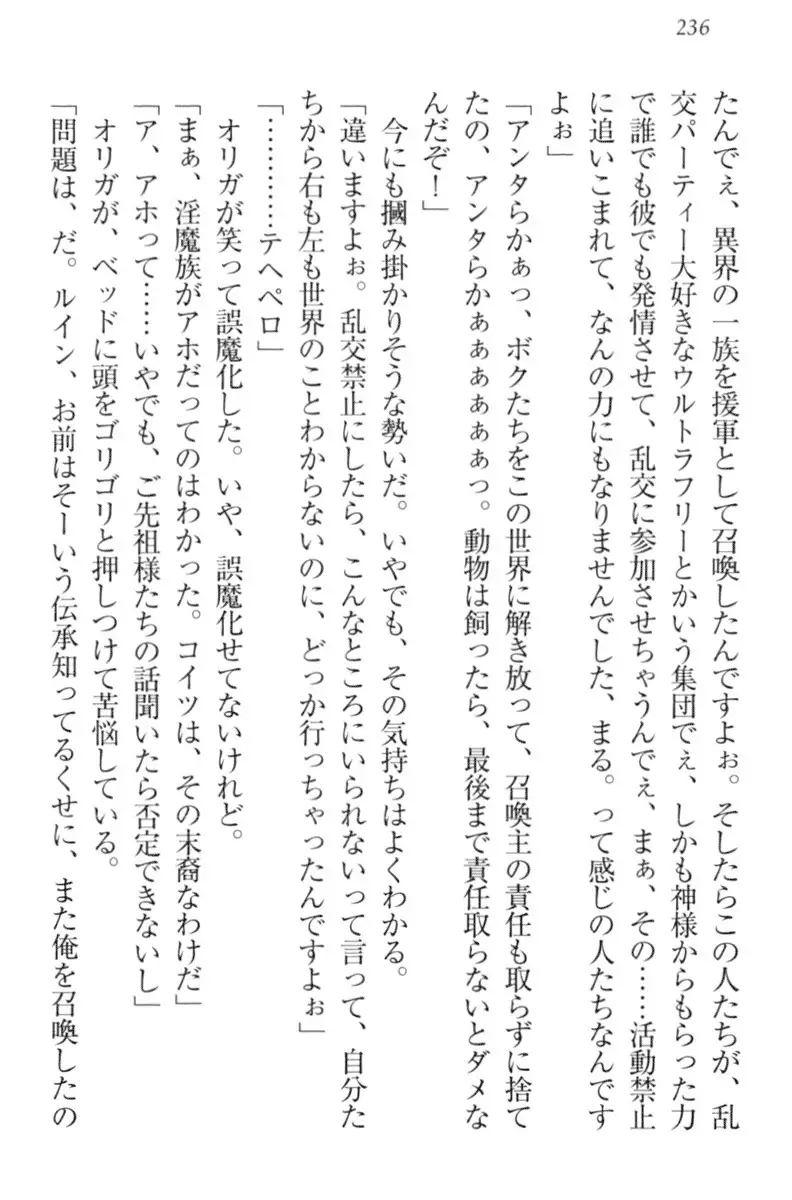 236
たんでぇ、異界の一族を援軍として召喚したんですよぉ。そしたらこの人たちが、乱
交パーティー大好きなウルトラフリーとかいう集団でぇ、しかも神様からもらった力
で誰でも彼でも発情させて、乱交に参加させちゃうんでぇ、まぁ、その……活動禁止
に追いこまれて、なんの力にもなりませんでした、まる。って感じの人たちなんです
よぉ」
「アンタらかぁっ、ボクたちをこの世界に解き放って、召喚主の責任も取らずに捨て
たの、アンタらかぁぁぁぁぁぁっ。動物は飼ったら、最後まで責任取らないとダメな
んだぞ！」
今にも摑み掛かりそうな勢いだ。いやでも、その気持ちはよくわかる。
「違いますよぉ。乱交禁止にしたら、こんなところにいられないって言って、自分た
ちから右も左も世界のことわからないのに、どっか行っちゃったんですよぉ」
「…………テヘペロ」
オリガが笑って誤魔化した。いや、誤魔化せてないけれど。
「まぁ、淫魔族がアホだってのはわかった。コイツは、その末裔なわけだ」
「ア、アホって……いやでも、ご先祖様たちの話聞いたら否定できないし」
オリガが、ベッドに頭をゴリゴリと押しつけて苦悩している。
「問題は、だ。ルイン、お前はそーいう伝承知ってるくせに、また俺を召喚したの